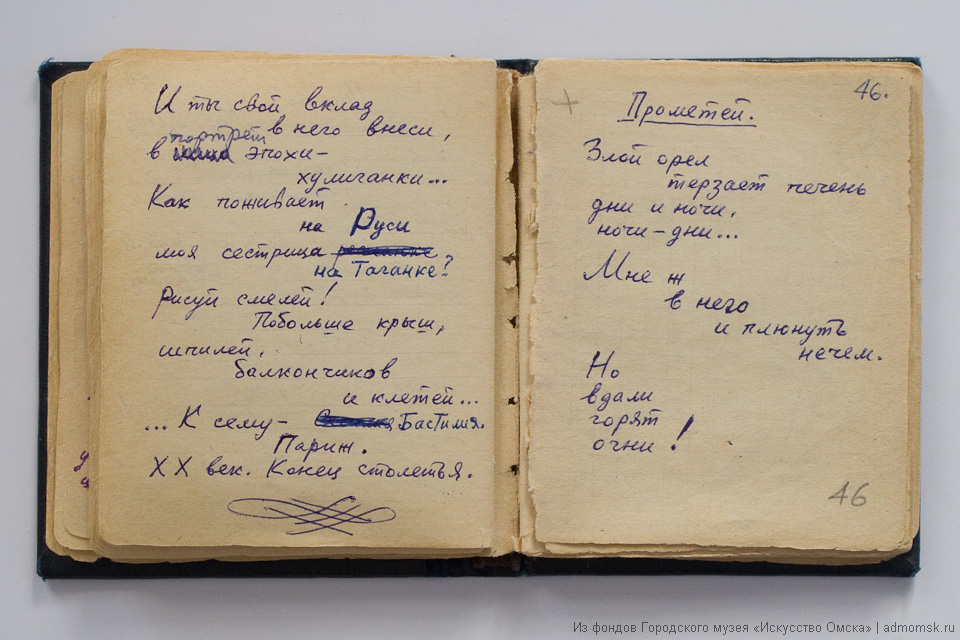 И ты свой вклад
в него внеси,
портрет
в эпохи–
хулиганки...
Как поживает
на Руси
моя сестрица
на Таганке?
Рисуй смелей!
Побольше крыш,
шпилей,
балкончиков
и клетей...
...К сему– Бастилия.
Париж.
XX век. Конец столетья.
46.
Прометей.
Злой орел
терзает печень
дни и ночи,
ночи–дни...
Мне ж
в него
и плюнуть
нечем.
Но
вдали
горят
огни!
46
Из фондов Городского музея «Искусство Омска» | admomsk.ru